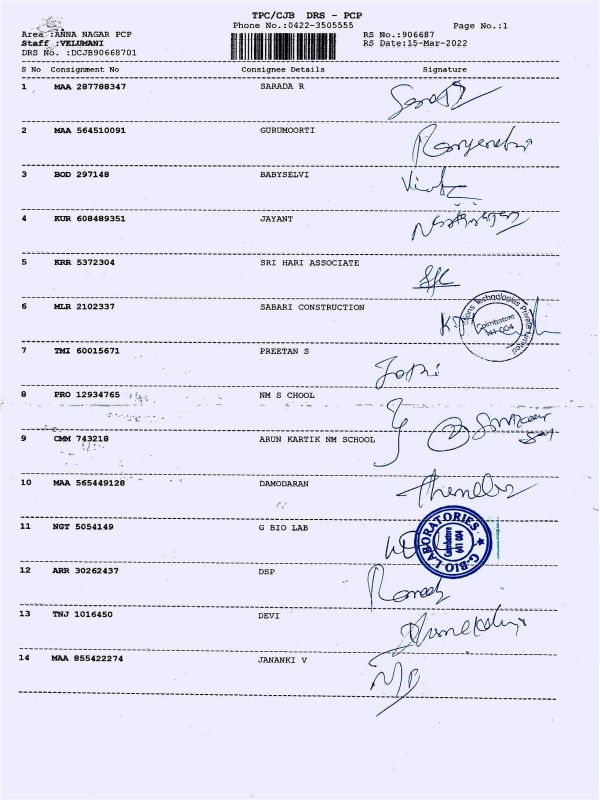 TPC/CJB DRS - PCP
Phone No.:0422-3505555
Page No.:1
Area :ANNA NAGAR PCP
RS No.:906687
Staff :VELUMANI
RS Date:15-Mar-2022
DRS No. :DCJB90668701
S No Consignment No Consignee Details Signature
1 MAA 287788347 SARADA R
2 MAA 564510091 GURUMOORTI
3 BOD 297148 BABYSELVI
4 KUR 608489351 JAYANT
5 KRR 5372304 SRI HARI ASSOCIATE
6 MLR 2102337 SABARI CONSTRUCTION
Technologies Private Limited
Coimbatore
641 004
7 TMI 60015671 PREETAN S
8 PRO 12934765 NM S CHOOL
9 CMM 743218 ARUN KARTIK NM SCHOOL
10 MAA 565449128 DAMODARAN
11 NGT 5054149 G BIO LAB
G-BIO LABORATORIES
Coimbatore
641 004
12 ARR 30262437 DSP
13 TNJ 1016450 DEVI
14 MAA 855422274 JANANKI V